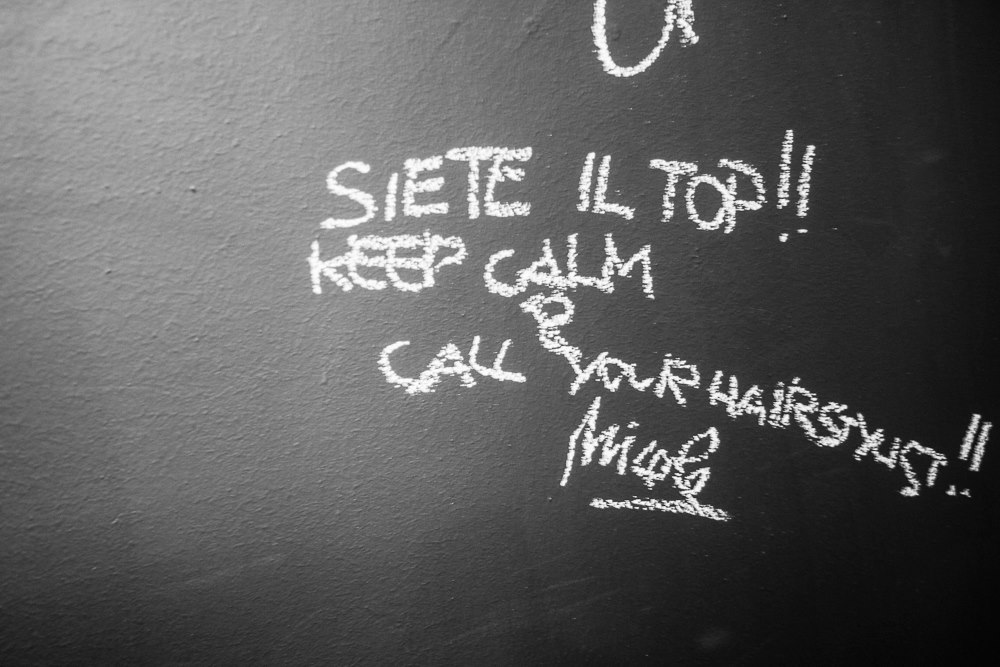 SIETE IL TOP!!
KEEP CALM
&
CALL YOUR HAIRSYLIST!!
Nicole